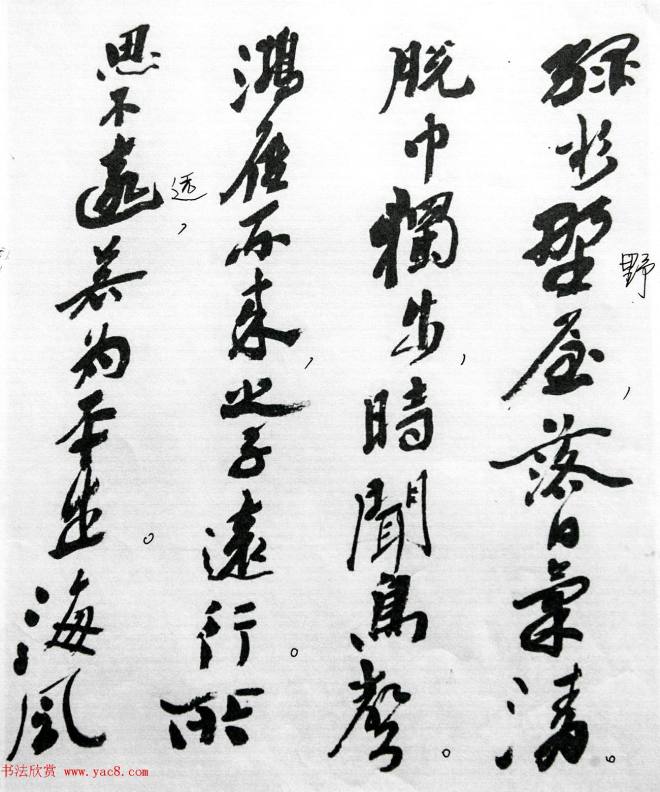 綠杉野屋，落日氣清。
野
脫巾獨步，時聞鳥聲。
鴻雁不来，之子遠行。所
思不遠，若为平生。海風
远
书法欣赏 www.yac8.com